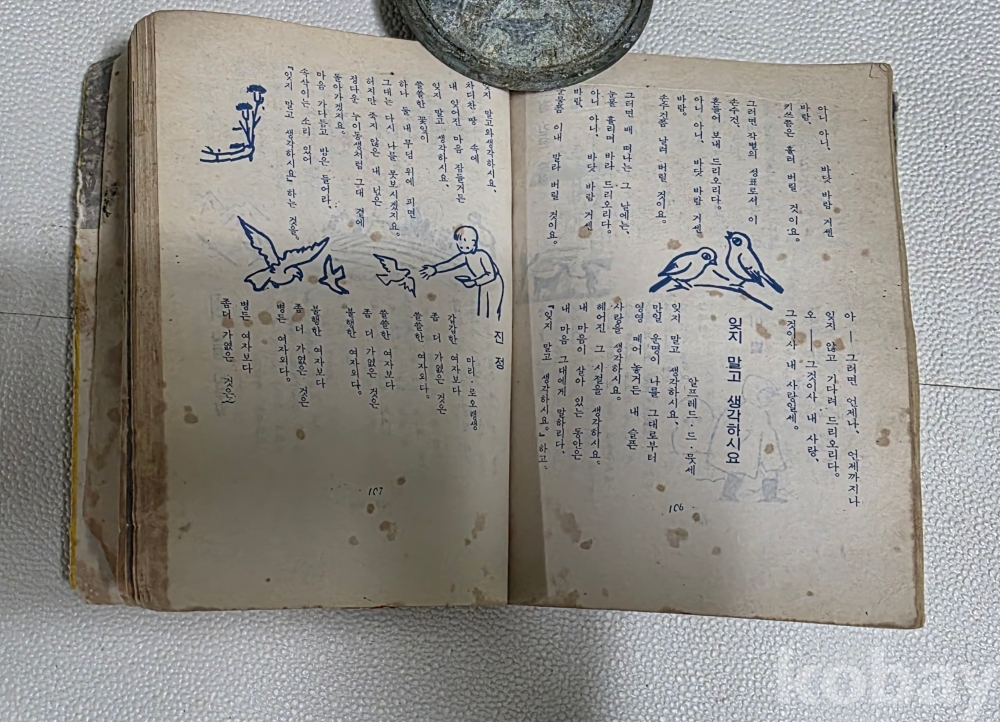 아니 아니, 바닷 바람 거센
바람,
키쓰쯤은 흘러 버릴 것이요.
그러면 작별의 정표로서 이
손수건,
흔들어 보내 드리오리다.
아니 아니, 바닷 바람 거센
바람,
손수건쯤 날려 버릴 것이요.
그러면 배 떠나는 그 날에는,
눈물 흘리며 바라 드리오리다.
아니 아니, 바닷 바람 거센
바람,
눈물쯤 이내 말라 버릴 것이요.
아── 그러면 언제나, 언제까지나
잊지 않고 기다려 드리오리다.
오── 그것이사 내 사랑,
그것이사 내 사랑일세.
잊지 말고 생각하시요
알프레드·드·뮷세
잊지 말고 생각하시요,
만일 운명이 나를 그대로부터
영영 떼어 놓거든 내 슬픈
사랑을 생각하시요.
헤어진 그 시절을 생각하시요.
내 마음이 살아 있는 동안은
내 마음 그대에게 말하리다.
『잊지 말고 생각하시요.』하고.
106
잊지 말고와 생각하시요,
차디찬 땅 속에
내 잊어진 마음 잠들거든
잊지 말고 생각하시요.
쓸쓸한 꽃잎이
하나 둘 내 무덤 위에 피면
그대는 다시 나를 못보시겠지요.
허지만 죽지 않은 내 넋은
정다운 누이동생처럼 그대 곁에
돌아가겠지요.
마음 가다듬고 밤은 들어라.
속삭이는 소리 있어
『잊지 말고 생각하시요』하는 것을.
진정
마리·로오랭생
갑갑한 여자보다
좀 더 가엾은 것은
쓸쓸한 여자외다.
쓸쓸한 여자보다
좀 더 가엾은 것은
불행한 여자외다.
불행한 여자보다
좀 더 가엾은 것은
병든 여자외다.
병든 여자보다
좀더 가엾은 것은
107
kobay